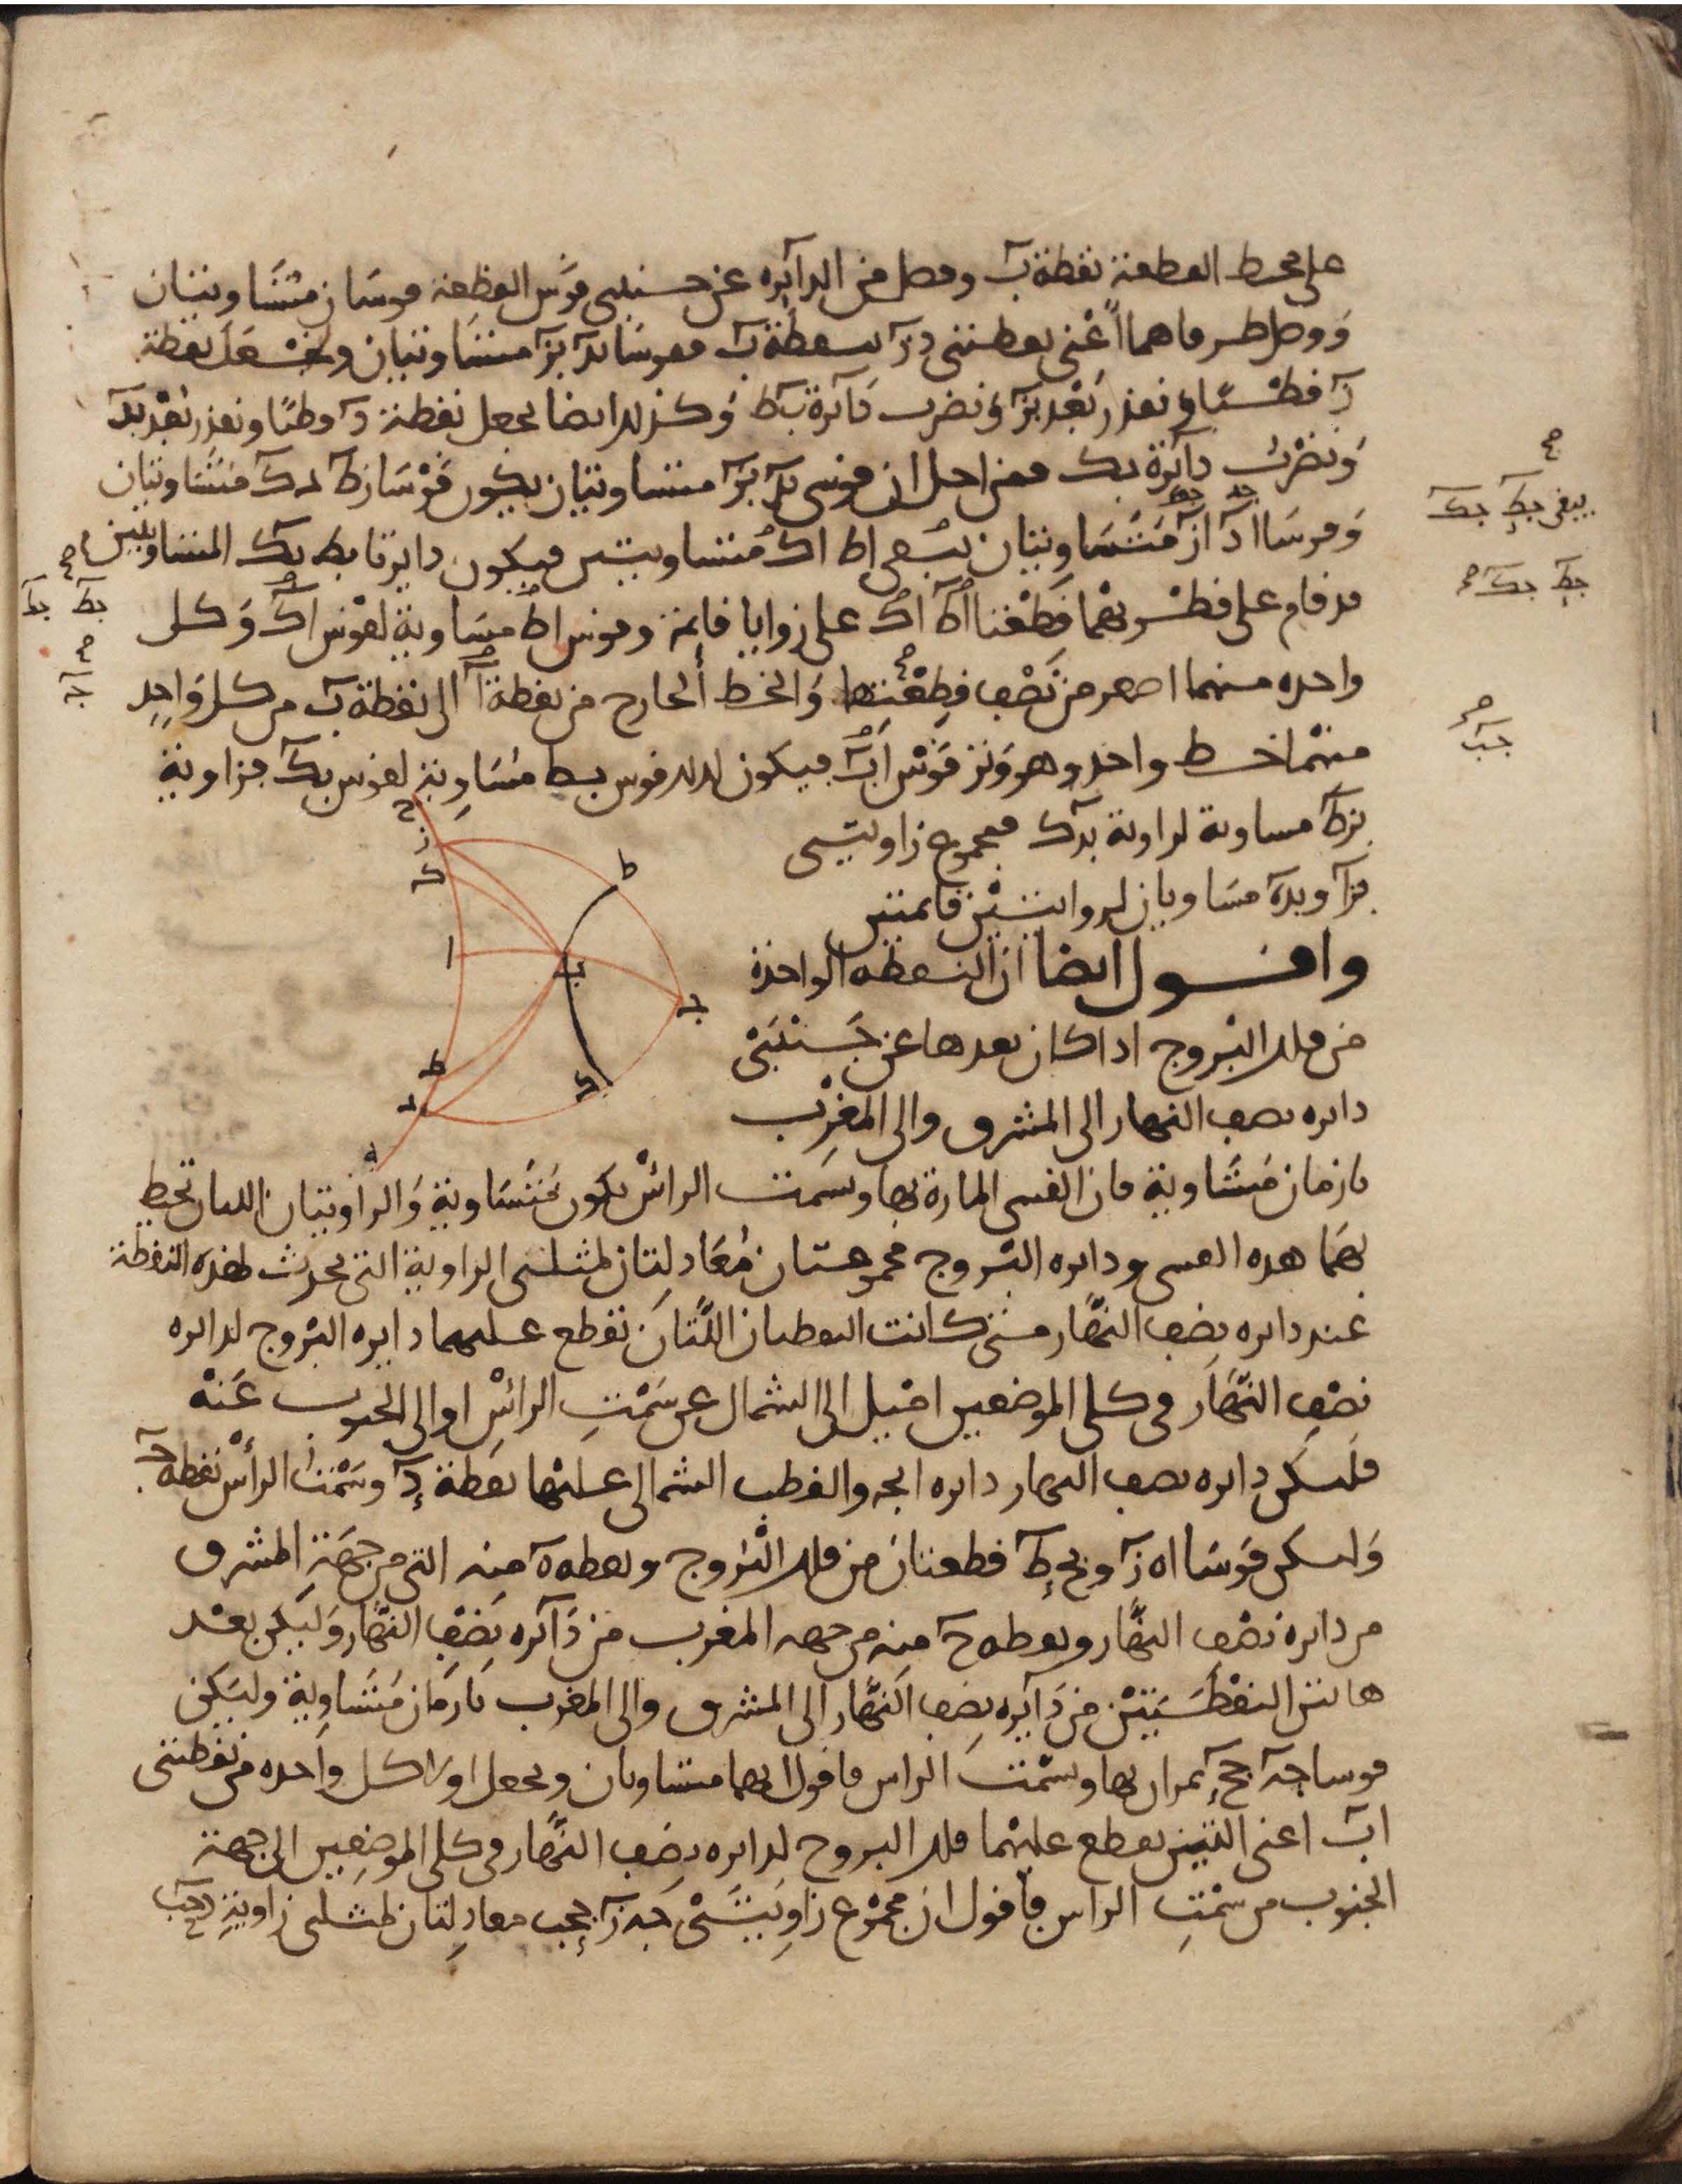 على محيط القطعة نقطة ب وفصل من الدائره عن جنبتي قوس القطعة قوسان متساويتان
ووصل طرفاهما أعني نقطتي د ز بنقطة ب فقوسا بد بز متساويتان ونجعل نقطة
ز قطبًا وببعد بز ونضرب دائرة بط وكذلك ايضا نجعل نقطة د قطبًا وببعد بد
ونضرب دائرة بك فمن اجل ان قوسي بد بز متساويتان يكون قوسا زط دك متساويتان
وقوسا اد از متساويتان يبقى اط اك متساويتين فيكون دايرتا بط بك المتساويتين
قد قام على قطريهما قطعتا اط اك على زوايا قايمة وقوس اط مساوية لقوس اك وكل
واحده منهما اصغر من نصف قطعتها والخط الخارج من نقطة ا الى نقطة ب من كل واحد
منهما خط واحد وهو وتر قوس اب فيكون لذلك قوس بط مساوية لقوس بك فزاوية
بزط مساوية لزاوية بدك فمجموع زاويتي
بزا وبدا مساويان لزوايتين قائمتين
واقول ايضا ان النقطه الواحدة
من فلك البروج اذا كان بعدها عن جنبتي
دايره نصف النهار الى المشرق والى المغرب
بازمان متساوية فان القسي المارة بها وبسمت الرأس تكون متساوية والزاويتان اللتان تحيط
بهما هذه القسي ودايره البروج مجموعتان معادلتان لمثلي الزاوية التي تحدث لهذه النقطة
عند دايره نصف النهار متى كانت النقطتان اللتان تقطع عليهما دايره البروج لدايره
نصف النهار في كلى الموضعين اميل الى الشمال عن سمت الرأس او الى الجنوب عنه
فلتكن دايره نصف النهار دايره ابجد والقطب الشمالي عليها نقطة د وسمت الرأس نقطة ج
ولتكن قوسا اه ز وبح ط قطعتان من فلك البروج ونقطة ه منه التي من جهة المشرق
من دايرة نصف النهار ونقطة ح منه من جهه المغرب من دائره نصف النهار وليكن بعد
هاتين النقطتين من دايره نصف النهار الى المشرق والى المغرب بازمان متساوية وليكن
قوسا جه جح تمران بها وبسمت الراس فاقول انهما متساويان ونجعل اولا كل واحده من نقطتي
اب اعني اللتين يقطع عليهما فلك البروج لدايره نصف النهار في كلى الموضعين الى جهة
الجنوب من سمت الراس فأقول ان مجموع زاويتي جه ز جحب معادلتان لمثلي زاوية دحب
يبقى جط جك
جط جك
جب
جط جك
جد جز
اب
ح
ز
ك
ط
ا
ب
ج
ط
ك
د
ه